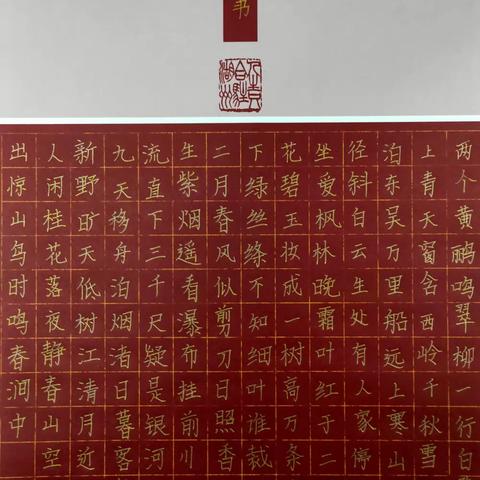 书
两个黄鹂鸣翠柳一行白
上青天窗含西岭千秋雪
泊东吴万里船远上寒山
径斜白云生处有人家停
坐爱枫林晚霜叶红于二
花碧玉妆成一树高万条
下绿丝绦不知细叶谁裁
二月春风似剪刀日照香
生紫烟遥看瀑布挂前川
流直下三千尺疑是银河
九天移舟泊烟渚日暮客
新野旷天低树江清月近
人闲桂花落夜静春山空
出惊山鸟时鸣春涧中